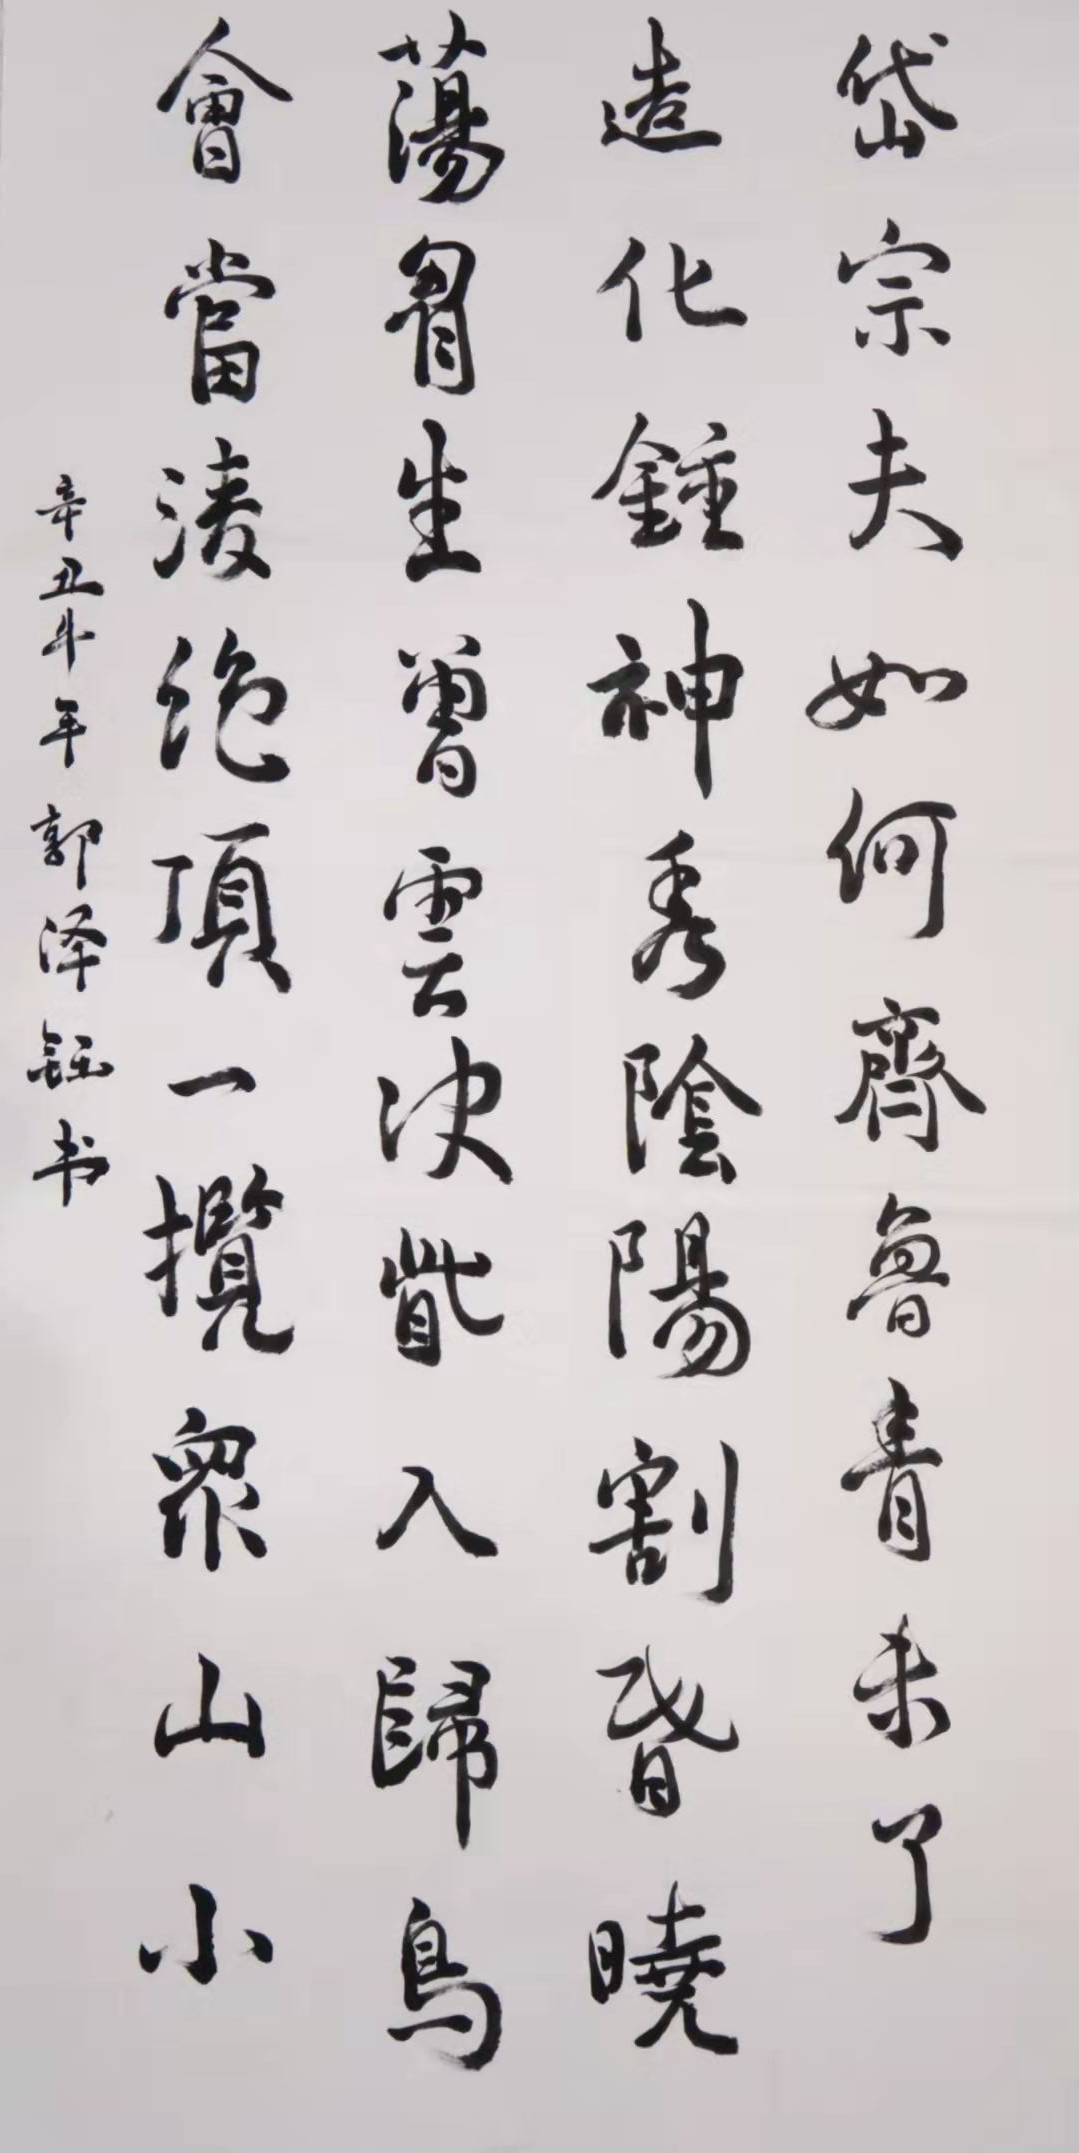 岱宗夫如何齊魯青未了
造化鍾神秀陰陽割昏曉
蕩胷生曾雲決眥入歸鳥
會當凌絶頂一攬衆山小
辛丑牛年郭泽钰书